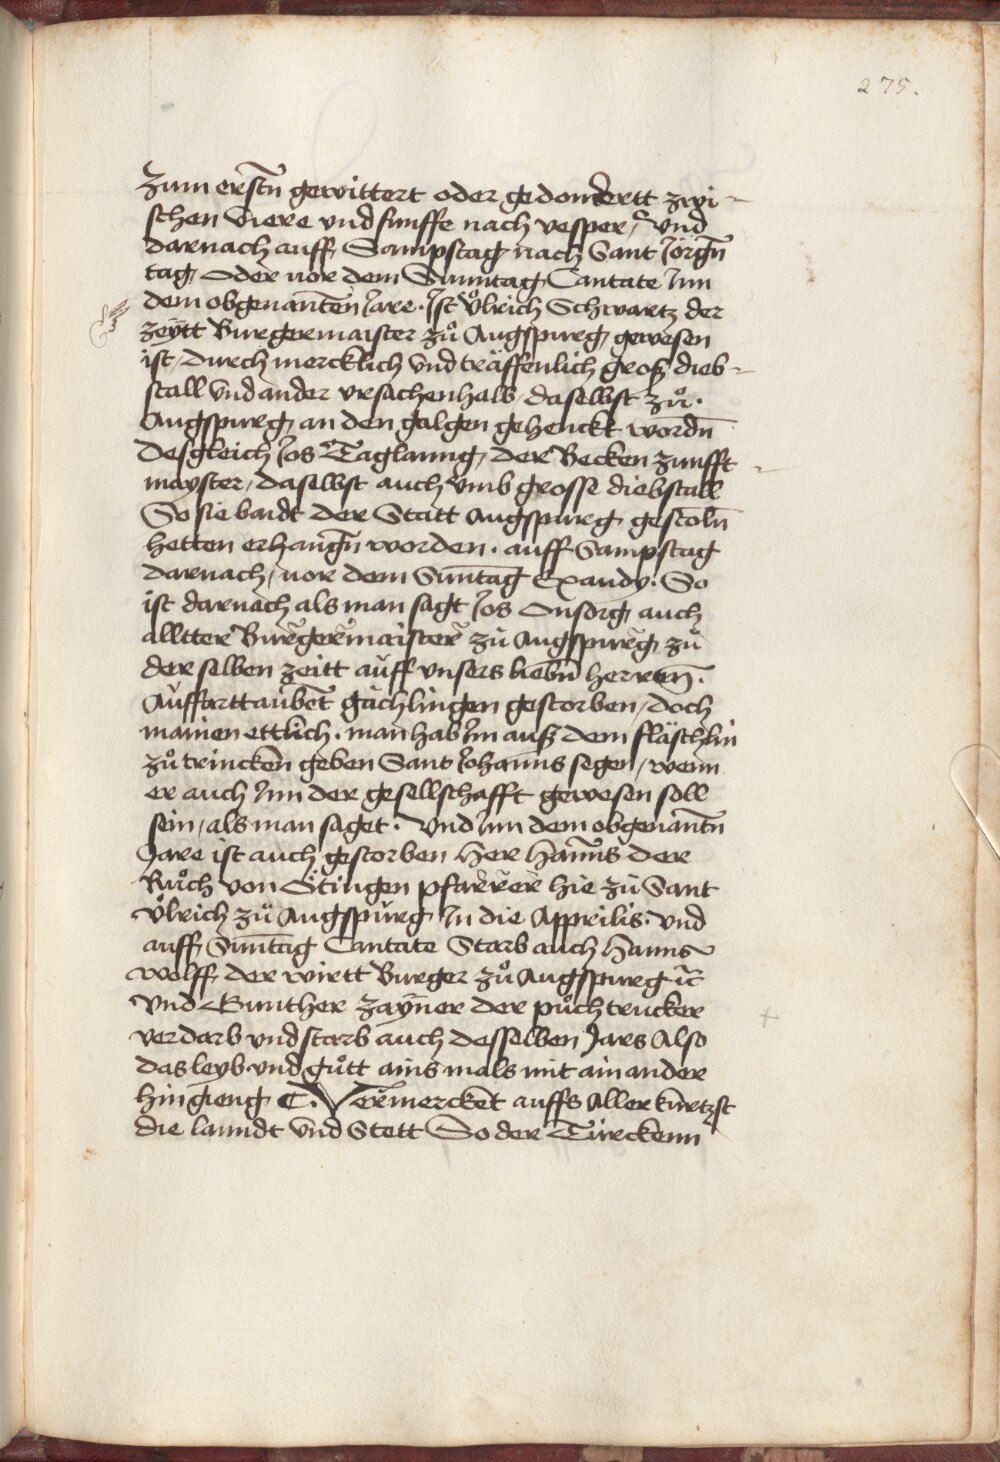 275.
Zum erstn̄ gewittert oder gedondertt zwi-
schen Viere vnd funffe nach vesper, Vnd
darnach auff Sampstag nach Sant Jörgn̄
tag, Oder vor dem Sunntag Cantate Jnn
dem obgenantten̄ Jare. Jst Vͦlrich Schwartz der
zeytt Burgermaister zuͦ Augspurg gewesen
ist, durch mercklich vnd träffenlich groß dieb-
stall vnd ander vrsachenhalb, daselbst zuͦ.
Augspurg, an den galgen gehenckt wordn̄
Desgleich Jos Taglanng, der Becken zunfft
mayster, daselbst auch vmb grosse diebstall
So sie baidt der Statt Augspurg gestoln̄
hetten erhangn̄ worden. auff Sampstag
darnach, vor dem Sun̄tag Exaudy. So
ist darnach als man sagt Jos Onsorg auch
alltter Burgermaister zu Augspurg, zu
der selben zeitt auff vnsers liebn̄ herren̄.
Auffarttaubet gächlingen gestorben, doch
mainen ettlich. man hab Jm auß dem fläschlin
zuͦ trincken̄ geben Sant Johanns segen, wenn
er auch Jnn der gesellschafft gewesen soll
sein, als man saget. Vnd Jnn dem obgenantn̄
Jare ist auch gestorben Herr Hanns der
Ruͦch von Ötingen pfarrer hie zu Sant
Vͦlrich zu Augspurg Jn die Apprilis. Vnd
auff Sun̄tag Cantate Starb auch Hanns
wolff, der wirtt Burger zuͦ Augspurg ꝛc̄
Vnd Gunther Zayner der puͦchtrucker
verdarb vnd starb auch desselben Jars Also
das leyb vnd guͦtt ains mals mit ainander
hin gieng ⸿. Vermerckent auffs Aller kurtzst
die lanndt vnd Stett So der Türckenn